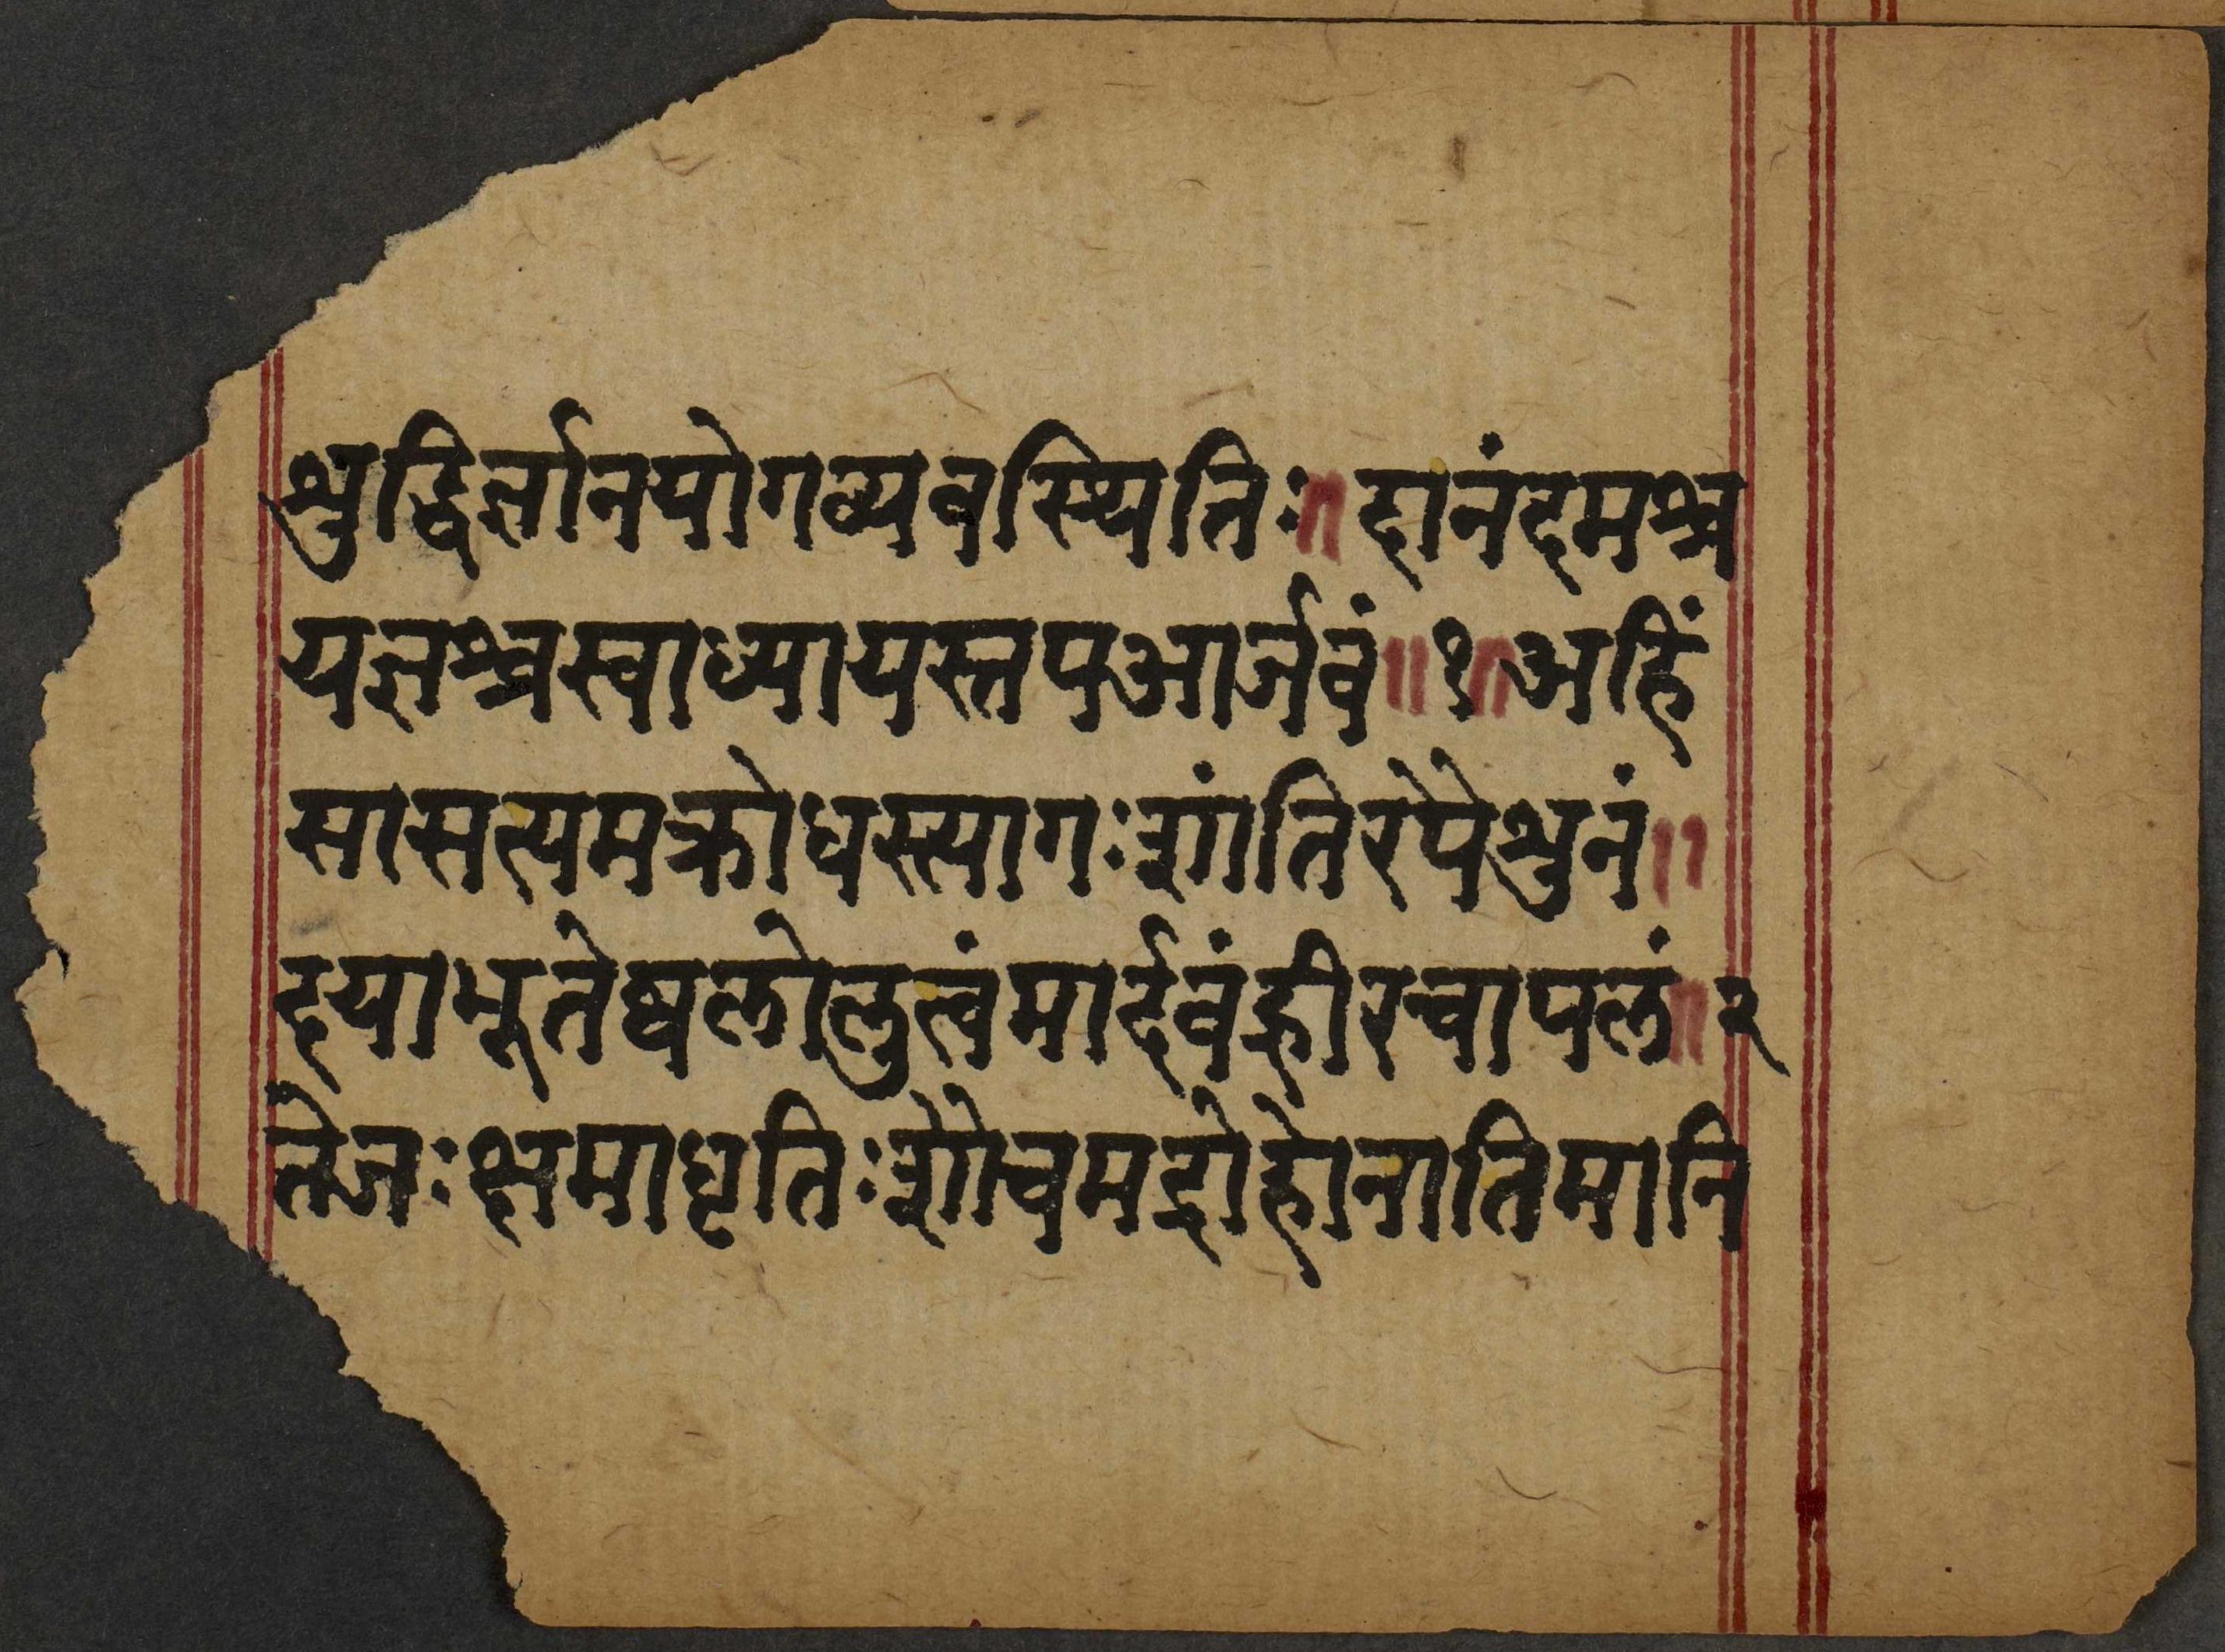 शुद्धिर्ज्ञानयोगव्यवस्थितिः॥दानंदमश्च
यज्ञश्चस्वाध्यायस्तपआर्जवं॥१॥अहिं
सासत्यमक्रोधस्त्यागःशांतिरपैशुनं॥
दयाभूतेष्वलोलुत्वंमार्दवंह्रीरचापलं॥२
तेजःक्षमाधृतिःशौचमद्रोहोनातिमानि